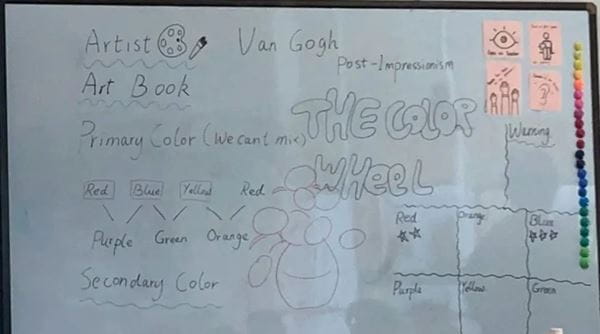 Artist Van Gogh
Post-Impressionism
Art Book
THE COLOR
WHEEL
Primary Color (We cant mix)
Warning
Red Blue Yellow Red
Purple Green Orange
Secondary Color
Red Orange Blue
Purple Yellow Green